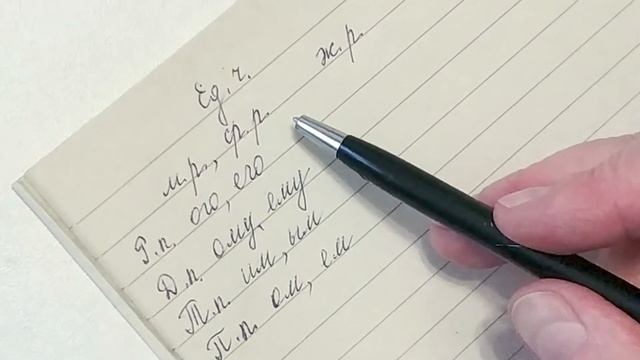 Ед.ч. ж.р.
м.р., ср.р.
Р.п. ого, его
Д.п. ому, ему
Т.п. им, ым
П.п. ом, ем